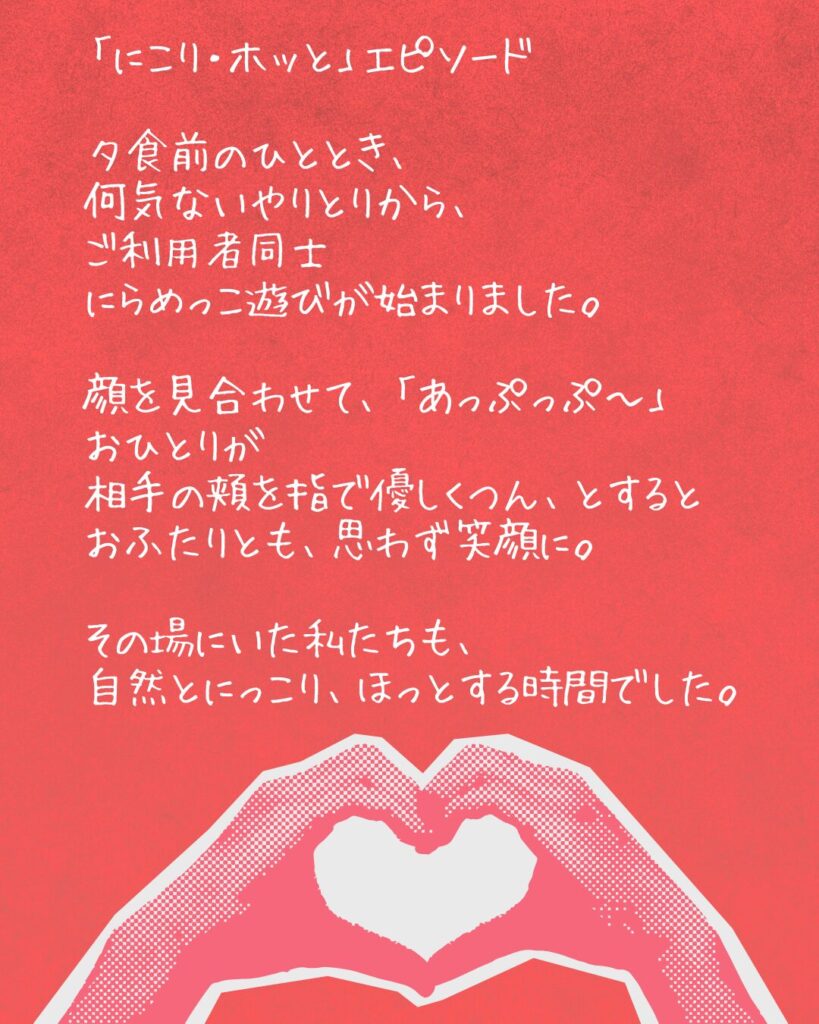 「にこり・ホッと」エピソード
夕食前のひととき、
何気ないやりとりから、
ご利用者同士
にらめっこ遊びが始まりました。
顔を見合わせて、「あっぷっぷ〜」
おひとりが
相手の頬を指で優しくつん、とすると
おふたりとも、思わず笑顔に。
その場にいた私たちも、
自然とにっこり、ほっとする時間でした。